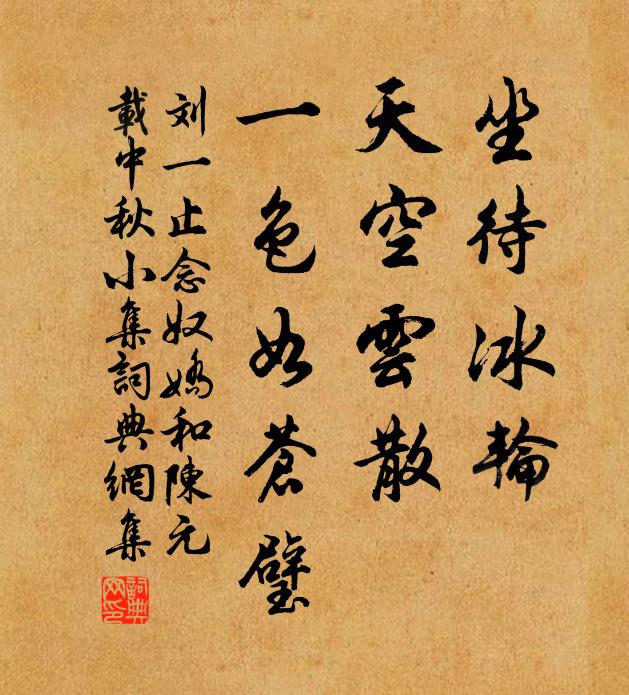 坐待冰輪
天空雲散
一色如蒼璧
刘一止念奴嬌和陳元
載中秋小集詞典網集
詞典网印